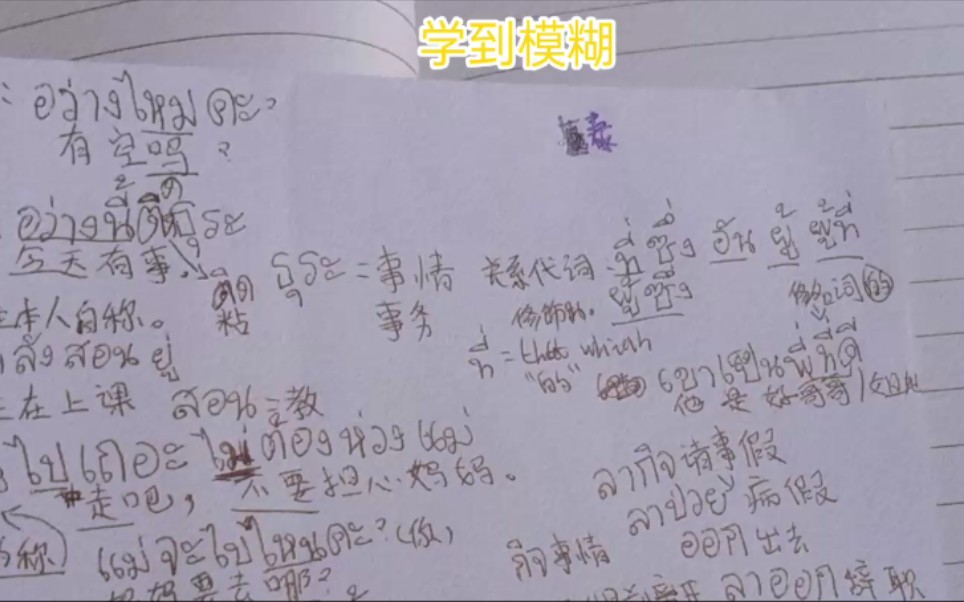 学到模糊
ว่างไหมคะ?
有空吗?
ว่างนี้ติดธุระ
今天有事!
ติด
粘
ธุระ = 事情
事务
关系代词: ที่ ซึ่ง อัน ผู้ ผู้ที่
修饰 ผู้ซึ่ง
修饰词 的
ที่ = that which
"的"
เขาเป็นพี่ที่ดี
他是好哥哥/姐姐
本人自称。
ลังสอนอยู่
在上课 สอน = 教
ไปเถอะ ไม่ต้องห่วงแม่
走吧, 不要担心妈妈。
ลากิจ 请事假
ลาป่วย 病假
称
แม่จะไปไหนคะ? (低)
กิจ 事情
ออก 出去
妈妈要去哪?
离开 ลาออก 辞职